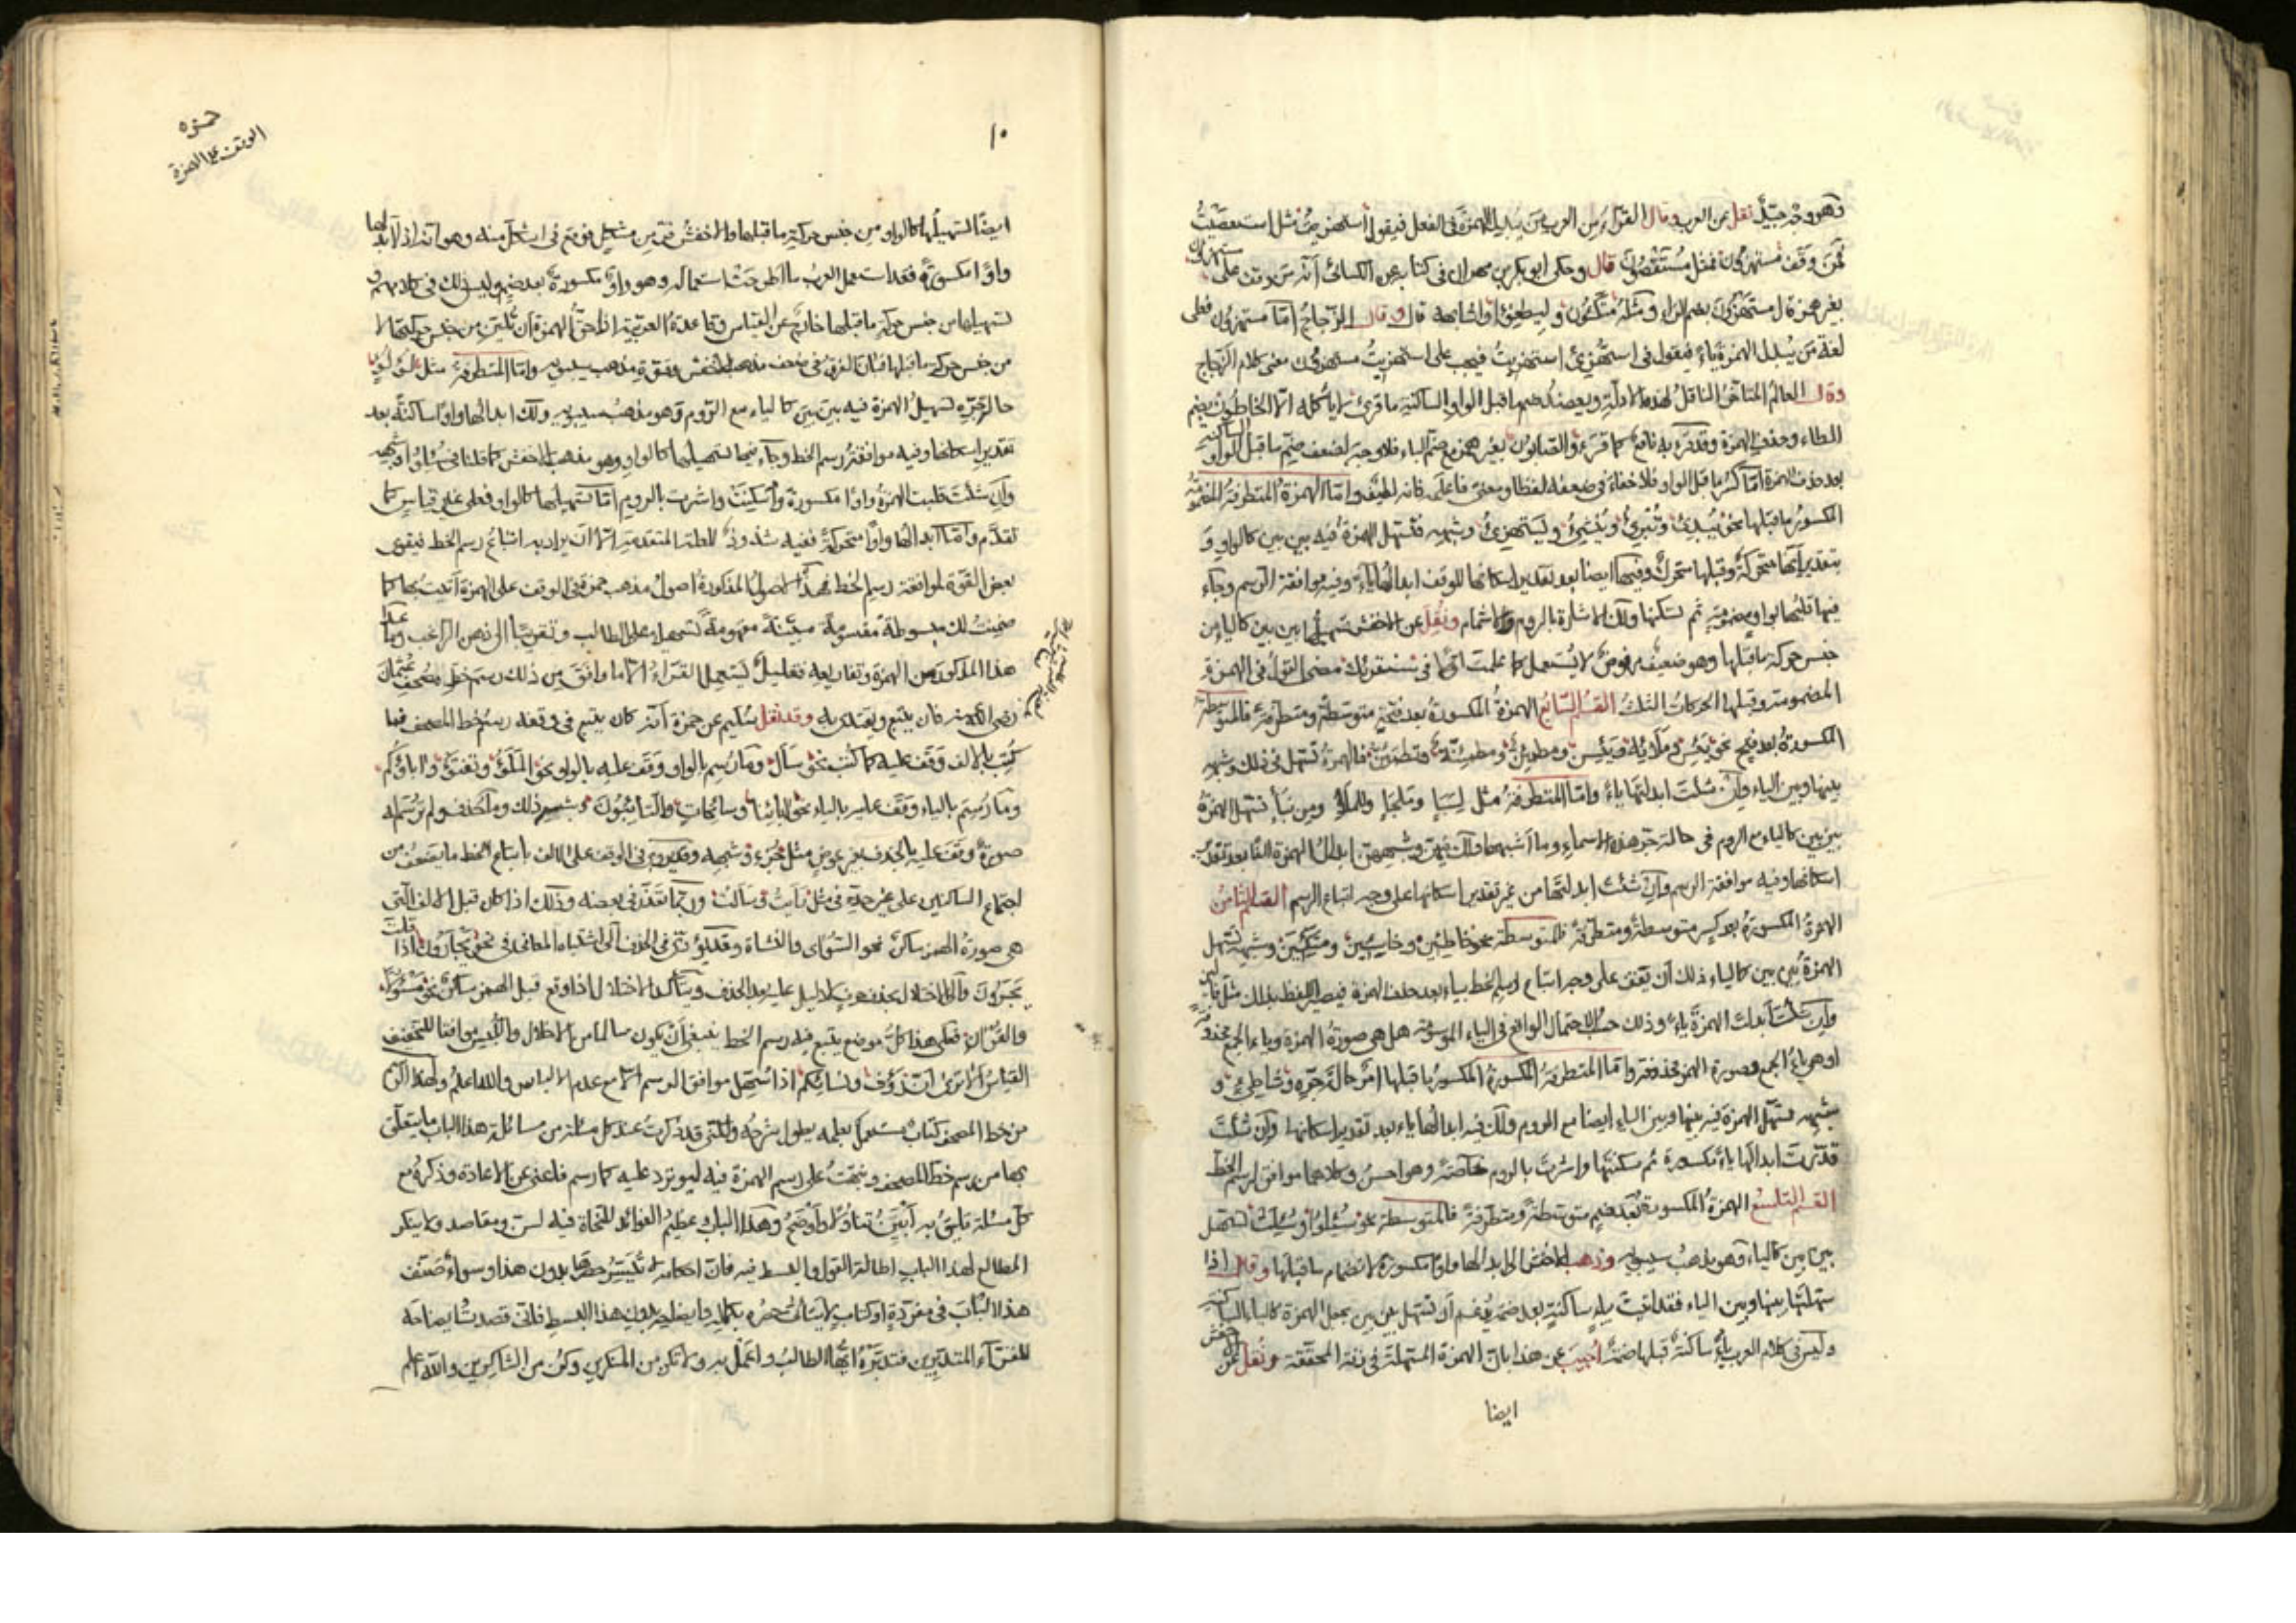 وهو وجه جيّد نقل عن العرب وقال الفرّاء من العرب من يبدل الهمزة في الفعل فيقول استهزيت مثل استعصيت
فمن وقف مستهزون فمثل مستقصون قال وحكى ابو بكر بن مهران في كتابه عن الكسائي انه من وقف على مستهزؤن
بغير همز قال مستهزون بضم الزاي ومثله متكون وليطفوا واشباهه قال وقال الزجاج اما مستهزون فعلى
لغة من يبدل الهمزة ياء فيقول في استهزئ استهزيت فيجب على استهزيت مستهزون معنى كلام الزجاج
وقال العالم المتأخر الناقل لهذه الادلة ويعضد ضم ما قبل الواو الساكنة ما قرئ لا يأكله الا الخاطون بضم
الطاء وحذف الهمزة وقد قرء به نافع كما قرء والصابون بغير همز مع ضم الباء فلا وجه لضعف ضم ما قبل الواو الساكنة
بعد حذف الهمزة اما كسر ما قبل الواو فلا خفاء في ضعفه لفظا ومعنى فاعلم فانه لطيف واما الهمزة المتطرفة المضمومة
المكسور ما قبلها نحو يبدئ وتبرئ وينشئ ويستهزئ وشبهه فتسهل الهمزة فيه بين بين كالواو و
بتقدير انها متحركة وقبلها متحرك وفيها ايضا بعد تقدير اسكانها للوقف ابدالها ياء وفيه موافقة الرسم وجاء
فيها قلبها بواو مضمومة ثم تسكنها ولك الاشارة بالروم والاشمام ونقل عن الاخفش تسهيلها بين بين كالياء من
جنس حركة ما قبلها وهو ضعيف مرفوض لا يستعمل كما علمت اولا في سنقرئك مضى القول في الهمزة
المضمومة وقبلها الحركات الثلث القسم السابع الهمزة المكسورة بعد فتحة متوسطة ومتطرفة فالمتوسطة
المكسورة بعد فتح نحو يئس وملائه ويئسن ومطمئن ومطمئنة وتطمئن فالهمزة تسهل في ذلك وشبهه
بينها وبين الياء وان شئت ابدلتها ياء واما المتطرفة مثل لسبإ وملجإ والملإ ومن نبإ تسهل الهمزة
بين بين كالياء مع الروم في حالة جر هذه الاسماء وما اشبهها ولك فيهن وشبههن ابدال الهمزة الفا بعد تقدير
اسكانها وفيه موافقة الرسم وان شئت ابدلتها من غير تقدير اسكانها على وجه اتباع الرسم القسم الثامن
الهمزة المكسورة بعد كسر متوسطة ومتطرفة فالمتوسطة نحو خاطئين وخاسئين ومتكئين وشبهه تسهل
الهمزة بين بين كالياء ذلك ان تقف على وجه اتباع رسم الخط بياء بعد حذف الهمزة فيصير اللفظ بذلك مثل
وان شئت ابدلت الهمزة ياء وذلك حسب الاحتمال الواقع في الياء الموسومة هل هي صورة الهمزة وياء الجمع محذوفة
او هي ياء الجمع وصورة الهمز محذوفة واما المتطرفة المكسورة المكسور ما قبلها امرئ حالة جره وشاطئ و
شبهه فتسهل الهمزة فيه بينها وبين الياء ايضا مع الروم ولك فيه ابدالها ياء بعد تقدير اسكانها وان شئت
قدرت ابدالها ياء مكسورة ثم سكنتها واشرت بالروم خاصة وهو احسن وكلاهما موافق لرسم الخط
القسم التاسع الهمزة المكسورة بعد ضم متوسطة ومتطرفة فالمتوسطة نحو سئلوا وسئلت تسهل
بين بين كالياء وهو مذهب سيبويه وذهب الاخفش الى ابدالها واوا مكسورة لانضمام ما قبلها وقال اذا
سهلتها بينها وبين الياء فقد اتيت بياء ساكنة بعد ضمة اذ تسهل بين بين يجعل الهمزة كالياء الساكنة
وليس في كلام العرب ياء ساكنة قبلها ضمة اجيب عن هذا بان الهمزة المسهلة في زنة المحققة ونقل عن الاخفش
ايضا
حمزه
الوقف على الهمزة
١٠
ايضا تسهيلها كالواو من جنس حركة ما قبلها والاخفش فر من مشكل فوقع في اشكل منه وهو انه اذا ابدلها
واوا مكسورة فقد استعمل العرب ما اطرحت استعماله وهو واو مكسورة بعد ضم وليس ذلك في كلامهم و
تسهيلها من جنس حركة ما قبلها خارج عن القياس وقاعدة العربية اذ حق الهمزة ان تلين من جنس حركتها لا
من جنس حركة ما قبلها فبان الفرق في ضعف مذهب الاخفش وقوة مذهب سيبويه واما المتطرفة مثل لؤلؤ
حال جره تسهيل الهمزة فيه بين بين كالياء مع الروم وهو مذهب سيبويه ولك ابدالها واوا ساكنة بعد
تقدير اسكانها وفيه موافقة رسم الخط وجاء فيها تسهيلها كالواو وهو مذهب الاخفش كما قلنا في سئلوا وشبهه
وان شئت قلبت الهمزة واوا مكسورة واسكنت واشرت بالروم اما تسهيلها كالواو فعلى غير قياس كما
تقدم واما ابدالها واوا متحركة ففيه شذوذ للعلة المتقدمة الا ان يراد به اتباع رسم الخط فيقوى
بعض القوة لموافقة رسم الخط فهذه الاصول المذكورة اصول مذهب حمزة في الوقف على الهمزة اتيت بها كما
ضمنت لك مبسوطة مقسومة مبينة مفهومة تسهيلا على الطالب وتقريبا الى ذهن الراغب وما عدا
هذا المذكور من الهمزة وتفاريعه فقليل يستعمل القراء الا ما وافق من ذلك رسم خط مصحف عثمان
رضي الله عنه فان يتبع ويقتدى به وقد نقل سليم عن حمزة انه كان يتبع في وقفه رسم خط المصحف فما
كتب بالالف وقف عليه كما كتب نحو سأل وما رسم بالواو وقف عليه بالواو نحو الملؤا وتفتؤا واباؤكم
وما رسم بالياء وقف عليه بالياء نحو ابائنا وسائحات والتائبون وشبه ذلك وما حذف ولم ترسم له
صورة وقف عليه بالحذف بغير عوض مثل جزء وشبهه وقد يؤدي في الوقف على الالف باتباع الخط ما يضعف من
اجتماع الساكنين على غير حدة في مثل رايت وسالت وربما تعذر في بعضه وذلك اذا كان قبل الالف التي
هي صورة الهمز ساكن نحو السوأى والنشأة وقد يؤدي في الحذف الى اشتباه المعاني في نحو يجأرون اذا قلت
يجرون والى الاخلال بحذف حرف لا دليل عليه بعد الحذف ويتأكد الاخلال اذا وقع قبل الهمز ساكن نحو مسؤلا
والقران فعلى هذا كل موضع يتبع فيه رسم الخط ينبغي ان يكون سالما من الاخلال واللبس موافقا للتخفيف
القياسي الا ترى ان رؤف ونسائكم اذا سهل موافق الرسم الا مع عدم الالباس والله اعلم ولهذا
من خط المصحف كتاب يستعمل بعلمه يطول شرحه ولكني قد ذكرت عند كل مسئلة من مسائله هذا الباب ما يتعلق
بها من رسم خط المصحف ونبهت على رسم الهمزة فيه كما رسم فاغنى عن الاعادة وذكره مع
كل مسئلة يليق به ابين تناولا واوضح وهذا الباب عظيم الفوائد للنحاة فيه لسن ومقاصد ولا ينكر
المطالع لهذا الباب اطالة القول والبسط فيه فان احكامه لا تيسر حصرها بدون هذا وسواء صنف
هذا الباب في مفردة او كتاب لا يتأتى حصره بكماله وايضاحه بدون هذا البسط فاني قصدت ايضاحه
للقراء المتدبرين فتدبره ايها الطالب واعمل به ولا تكن من المنكرين وكن من الشاكرين والله اعلم